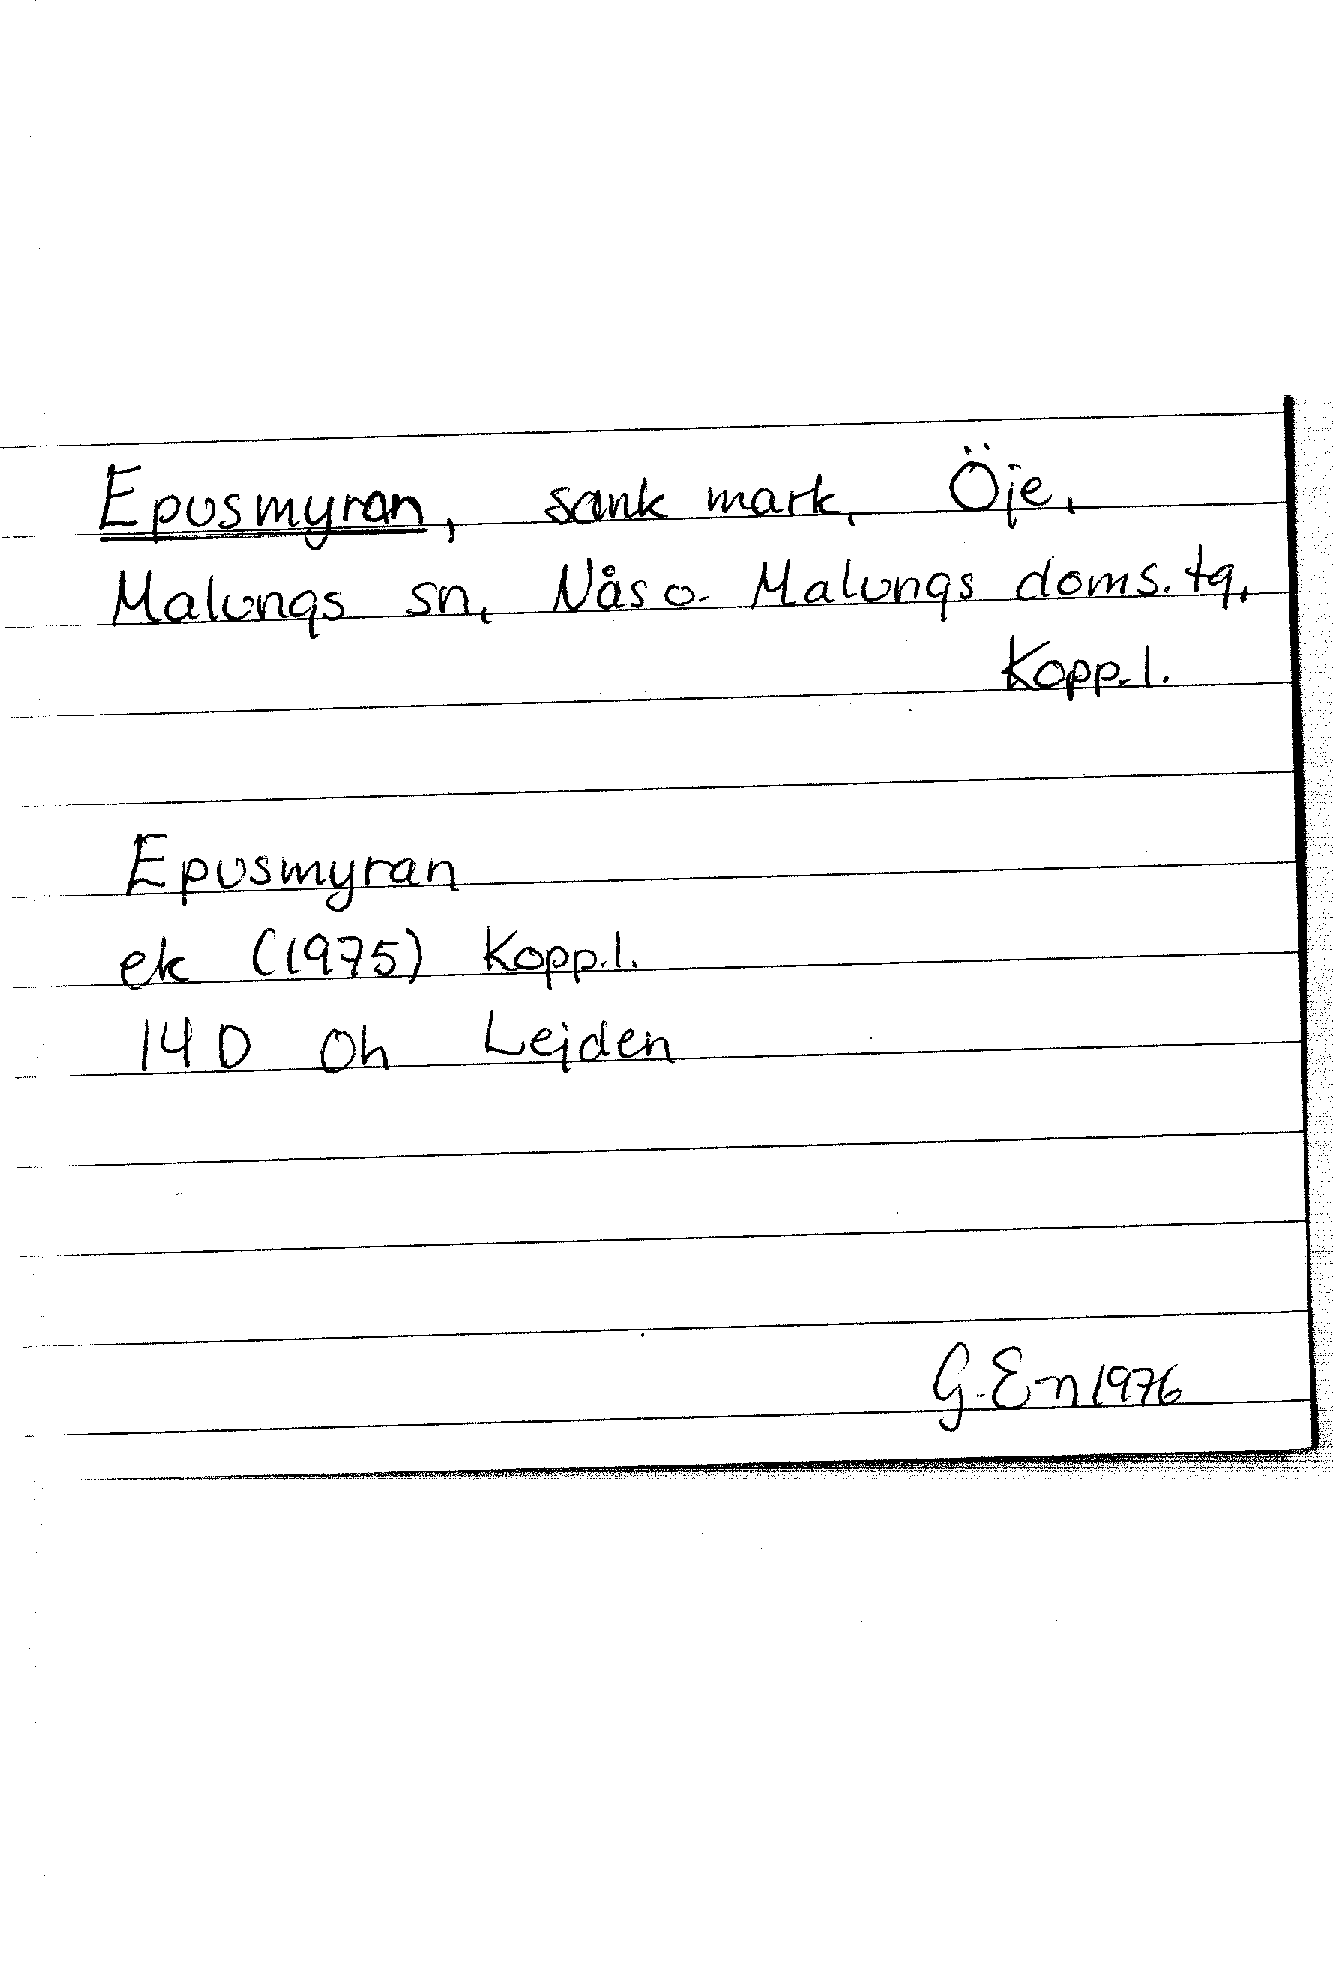 Epusmyran, sank mark, Öje,
Malungs sn, Nås o. Malungs doms.tg,
Kopp.l.
Epusmyran
ek (1975) Kopp.l.
14D 0h Lejden
G.E-n 1976